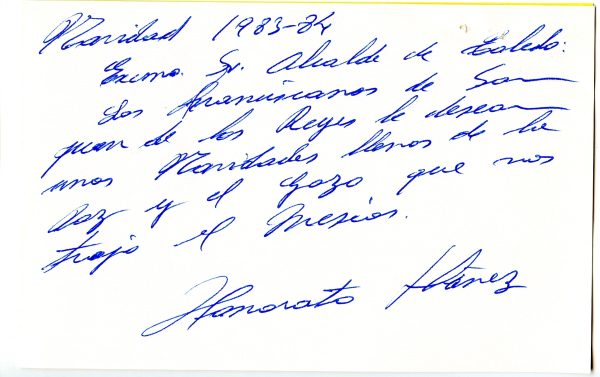 Navidad 1983-84
Excmo. Sr. Alcalde de Toledo:
Los Franciscanos de San
Juan de los Reyes le desean
unas Navidades llenas de la
Paz y el Gozo que nos
trajo el Mesías.
Honorato Ibánez